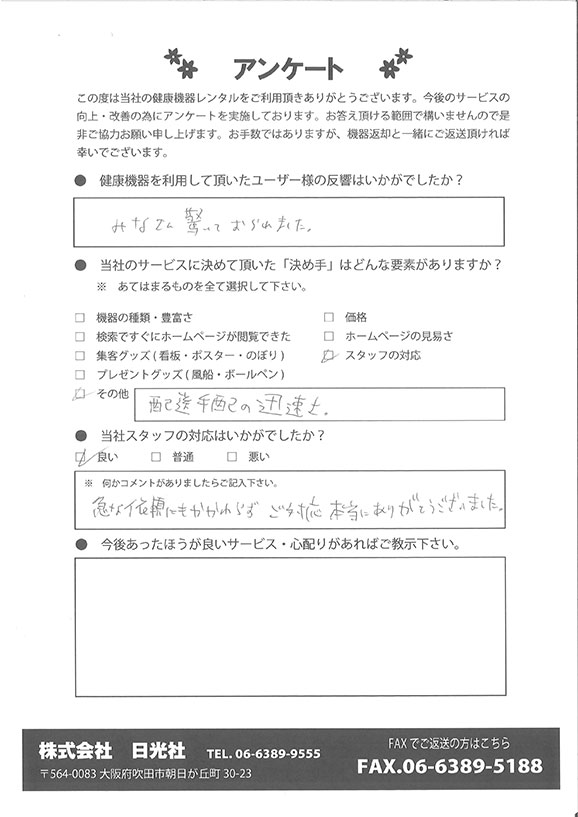 アンケート
この度は当社の健康機器レンタルをご利用頂きありがとうございます。今後のサービスの
向上・改善の為にアンケートを実施しております。お答え頂ける範囲で構いませんので是
非ご協力お願い申し上げます。お手数ではありますが、機器返却と一緒にご返送頂ければ
幸いでございます。
● 健康機器を利用して頂いたユーザー様の反響はいかがでしたか？
みなさん驚いておられました。
● 当社のサービスに決めて頂いた「決め手」はどんな要素がありますか？
※ あてはまるものを全て選択して下さい。
□ 機器の種類・豊富さ □ 価格
□ 検索ですぐにホームページが閲覧できた □ ホームページの見易さ
□ 集客グッズ(看板・ポスター・のぼり) ☑ スタッフの対応
□ プレゼントグッズ(風船・ボールペン)
☑ その他 配送手配の迅速さ。
● 当社スタッフの対応はいかがでしたか？
☑ 良い □ 普通 □ 悪い
※ 何かコメントがありましたらご記入下さい。
急な依頼にもかかわらず ご対応 本当にありがとうございました。
● 今後あったほうが良いサービス・心配りがあればご教示下さい。
株式会社 日光社 TEL. 06-6389-9555
〒564-0083 大阪府吹田市朝日が丘町 30-23
FAXでご返送の方はこちら
FAX.06-6389-5188